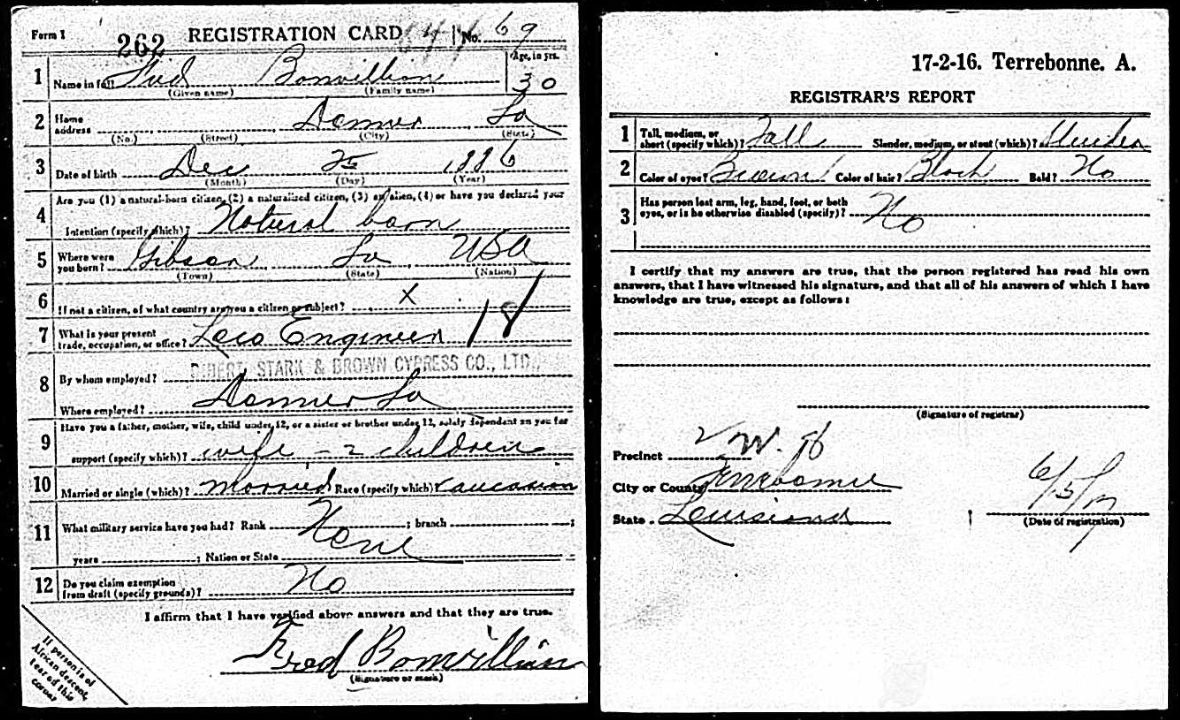 Form 1 262 REGISTRATION CARD No. 69
1 Name in full Fred Bonvillian Age, in yrs. 30
(Given name) (Family name)
2 Home address Donner La
(No.) (Street) (City) (State)
3 Date of birth Dec 25 1886
(Month) (Day) (Year)
4 Are you (1) a natural-born citizen, (2) a naturalized citizen, (3) an alien, (4) or have you declared your
intention (specify which)? Natural born
5 Where were you born? Gibson La USA
(Town) (State) (Nation)
6 If not a citizen, of what country are you a citizen or subject? X
7 What is your present trade, occupation, or office? Loco Engineer 18
8 By whom employed? DIBERT STARK & BROWN CYPRESS CO., LTD.
Where employed? Donner La
9 Have you a father, mother, wife, child under 12, or a sister or brother under 12, solely dependent on you for
support (specify which)? wife - 2 children
10 Married or single (which)? Married Race (specify which)? Caucasian
11 What military service have you had? Rank None ; branch ;
years ; Nation or State
12 Do you claim exemption from draft (specify grounds)? No
I affirm that I have verified above answers and that they are true.
Fred Bonvillian
(Signature or mark)
If person is of
African descent,
tear off this
corner
17-2-16. Terrebonne. A.
REGISTRAR'S REPORT
1 Tall, medium, or short (specify which)? Tall Slender, medium, or stout (which)? Slender
2 Color of eyes? Brown Color of hair? Black Bald? No
3 Has person lost arm, leg, hand, foot, or both
eyes, or is he otherwise disabled (specify)? No
I certify that my answers are true, that the person registered has read his own
answers, that I have witnessed his signature, and that all of his answers of which I have
knowledge are true, except as follows:
(Signature of registrar)
Precinct
City or County Terrebonne
State Louisiana
6/5/17
(Date of registration)